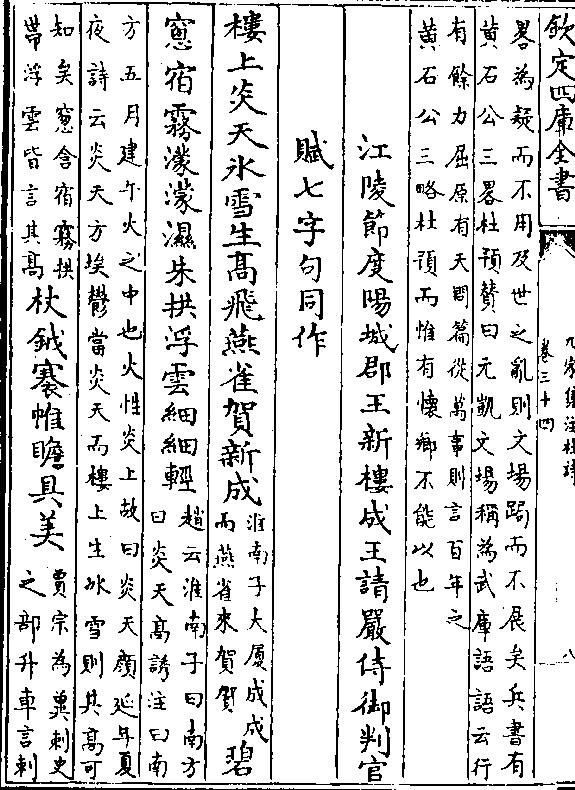 欽定四庫全書
九家集注杜詩
卷三十四
八
畧為疑而不用及世之亂則文場踢而不展矣兵書有
黄石公三畧杜預賛曰元凱文場稱為武庫語語云行
有餘力屈原有天問篇從萬事則言百年之
黄石公三略杜預而惟有懷鄉不能以也
江陵節度陽城郡王新樓成王請嚴侍御判官
賦七字句同作
樓上炎天氷雪生髙飛燕雀賀新成淮南子大厦成成而燕雀來賀賀碧
窻宿霧濛濛濕朱拱浮雲細細輕趙云淮南子曰南方曰炎天髙誘注曰南
方五月建午火之中也火性炎上故曰炎天顔延年夏
夜詩云炎天方埃鬱當炎天而樓上生氷雪則其髙可
知矣窻含宿霧拱帶浮雲皆言其髙杖鉞褰帷瞻具美賈宗為冀刺史之部升車言刺